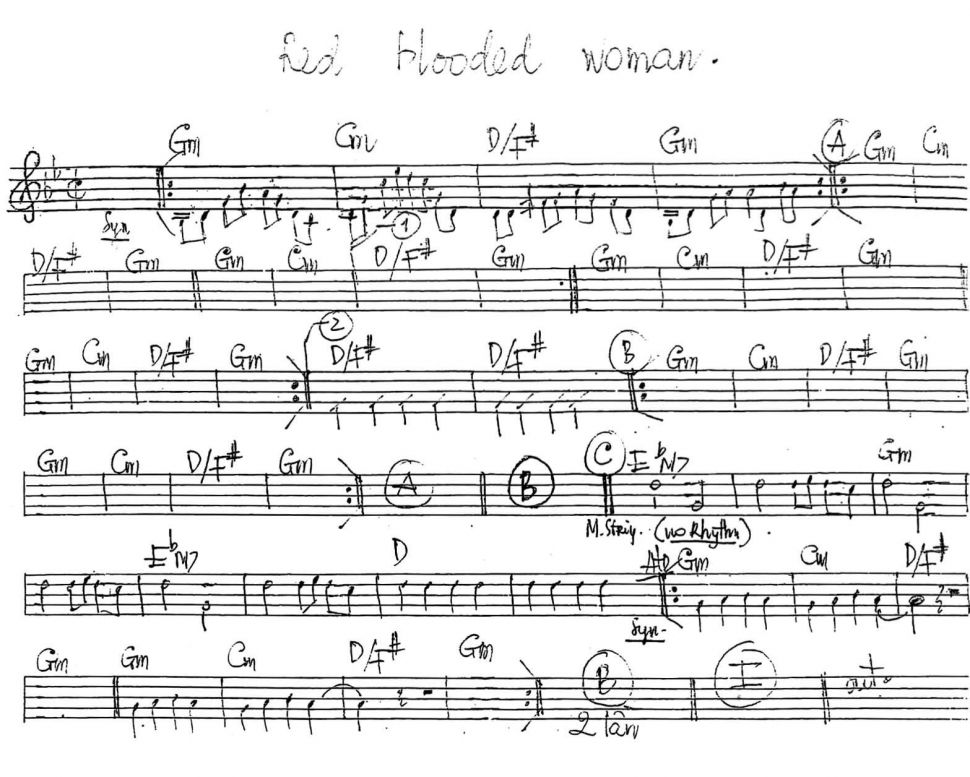 Red blooded woman.
Gm Cm D/F# Gm A Gm Cm
Syn 1
D/F# Gm Gm Cm D/F# Gm Gm Cm D/F# Gm
2
Gm Cm D/F# Gm D/F# D/F# B Gm Cm D/F# Gm
Gm Cm D/F# Gm A B C EbM7 Gm
M. String. (no Rhythm).
EbM7 D Gm Cm D/F#
Syn.
Gm Gm Cm D/F# Gm B I
2 lần